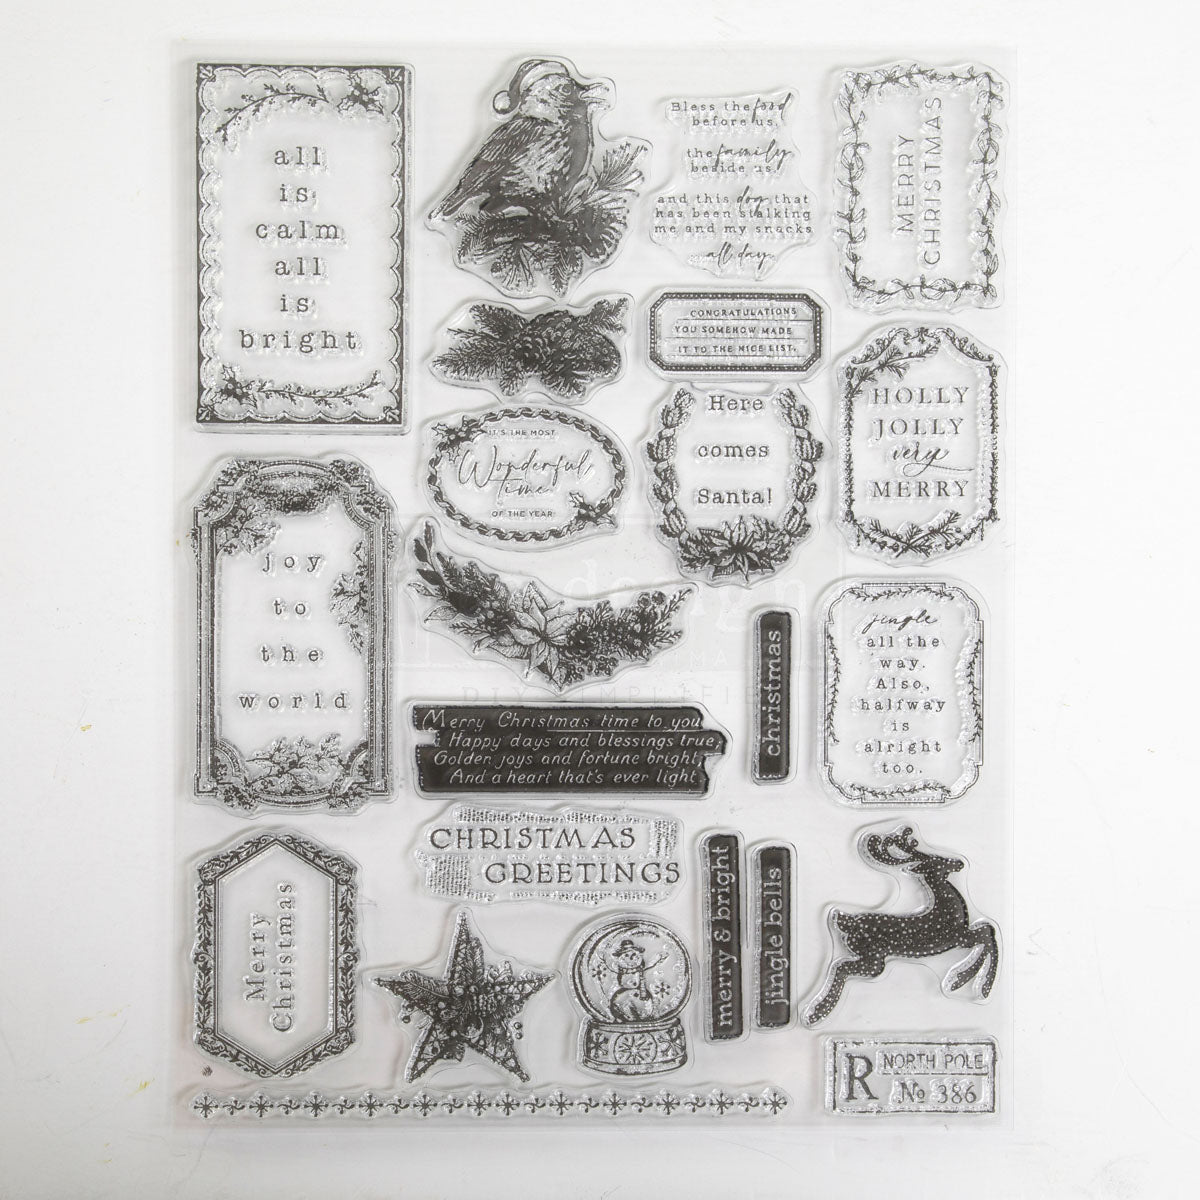 all
is
calm
all
is
bright
Bless the food
before us,
the family
beside us,
and this dog that
has been stalking
me and my snacks
all day.
MERRY
CHRISTMAS
CONGRATULATIONS
YOU SOMEHOW MADE
IT TO THE NICE LIST.
IT'S THE MOST
Wonderful
Time
OF THE YEAR
Here
comes
Santa!
HOLLY
JOLLY
very
MERRY
joy
to
the
world
design
PRIMA
DIY SIMPLIFIED
christmas
jingle
all the
way.
Also,
halfway
is
alright
too.
Merry Christmas time to you
Happy days and blessings true,
Golden joys and fortune bright,
And a heart that's ever light
CHRISTMAS
GREETINGS
Merry
Christmas
merry & bright
jingle bells
R
NORTH POLE
No 386